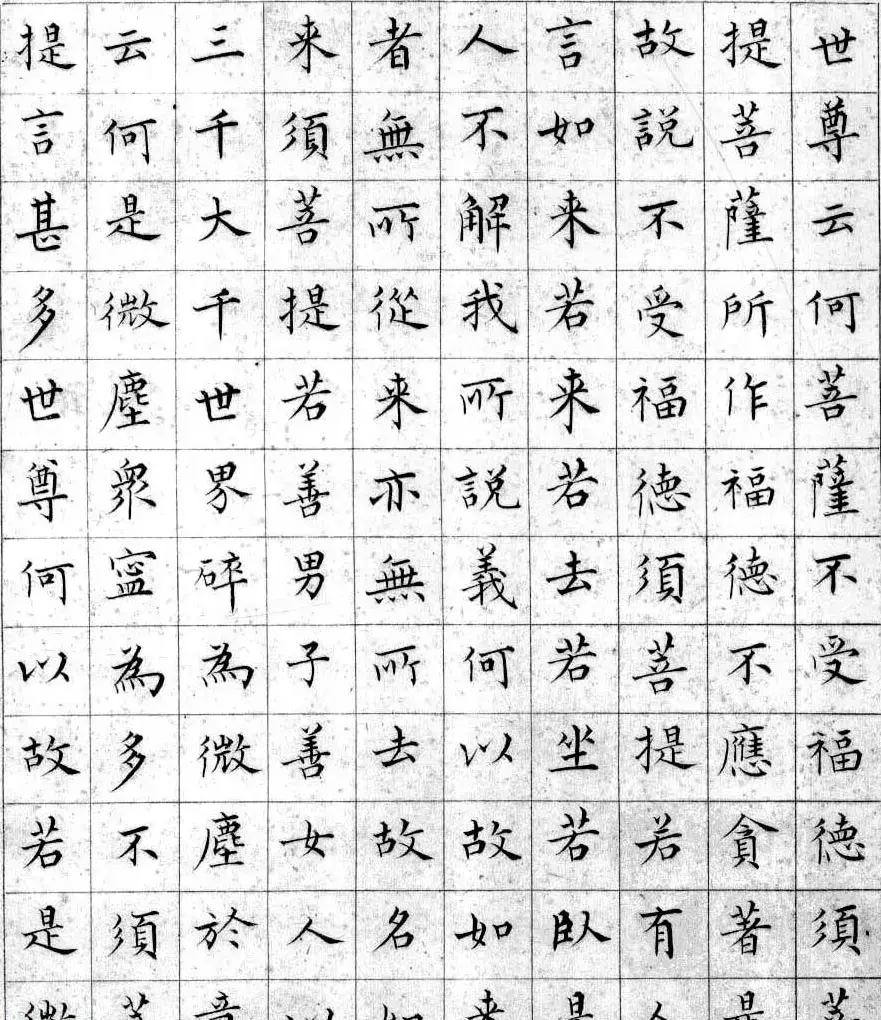 世尊云何菩薩不受福德須菩
提菩薩所作福德不應貪著是
故説不受福德須菩提若有人
言如来若来若去若坐若臥是
人不解我所説義何以故如来
者無所從来亦無所去故名如
来須菩提若善男子善女人以
三千大千世界碎為微塵於意
云何是微塵衆寧為多不須菩
提言甚多世尊何以故若是微